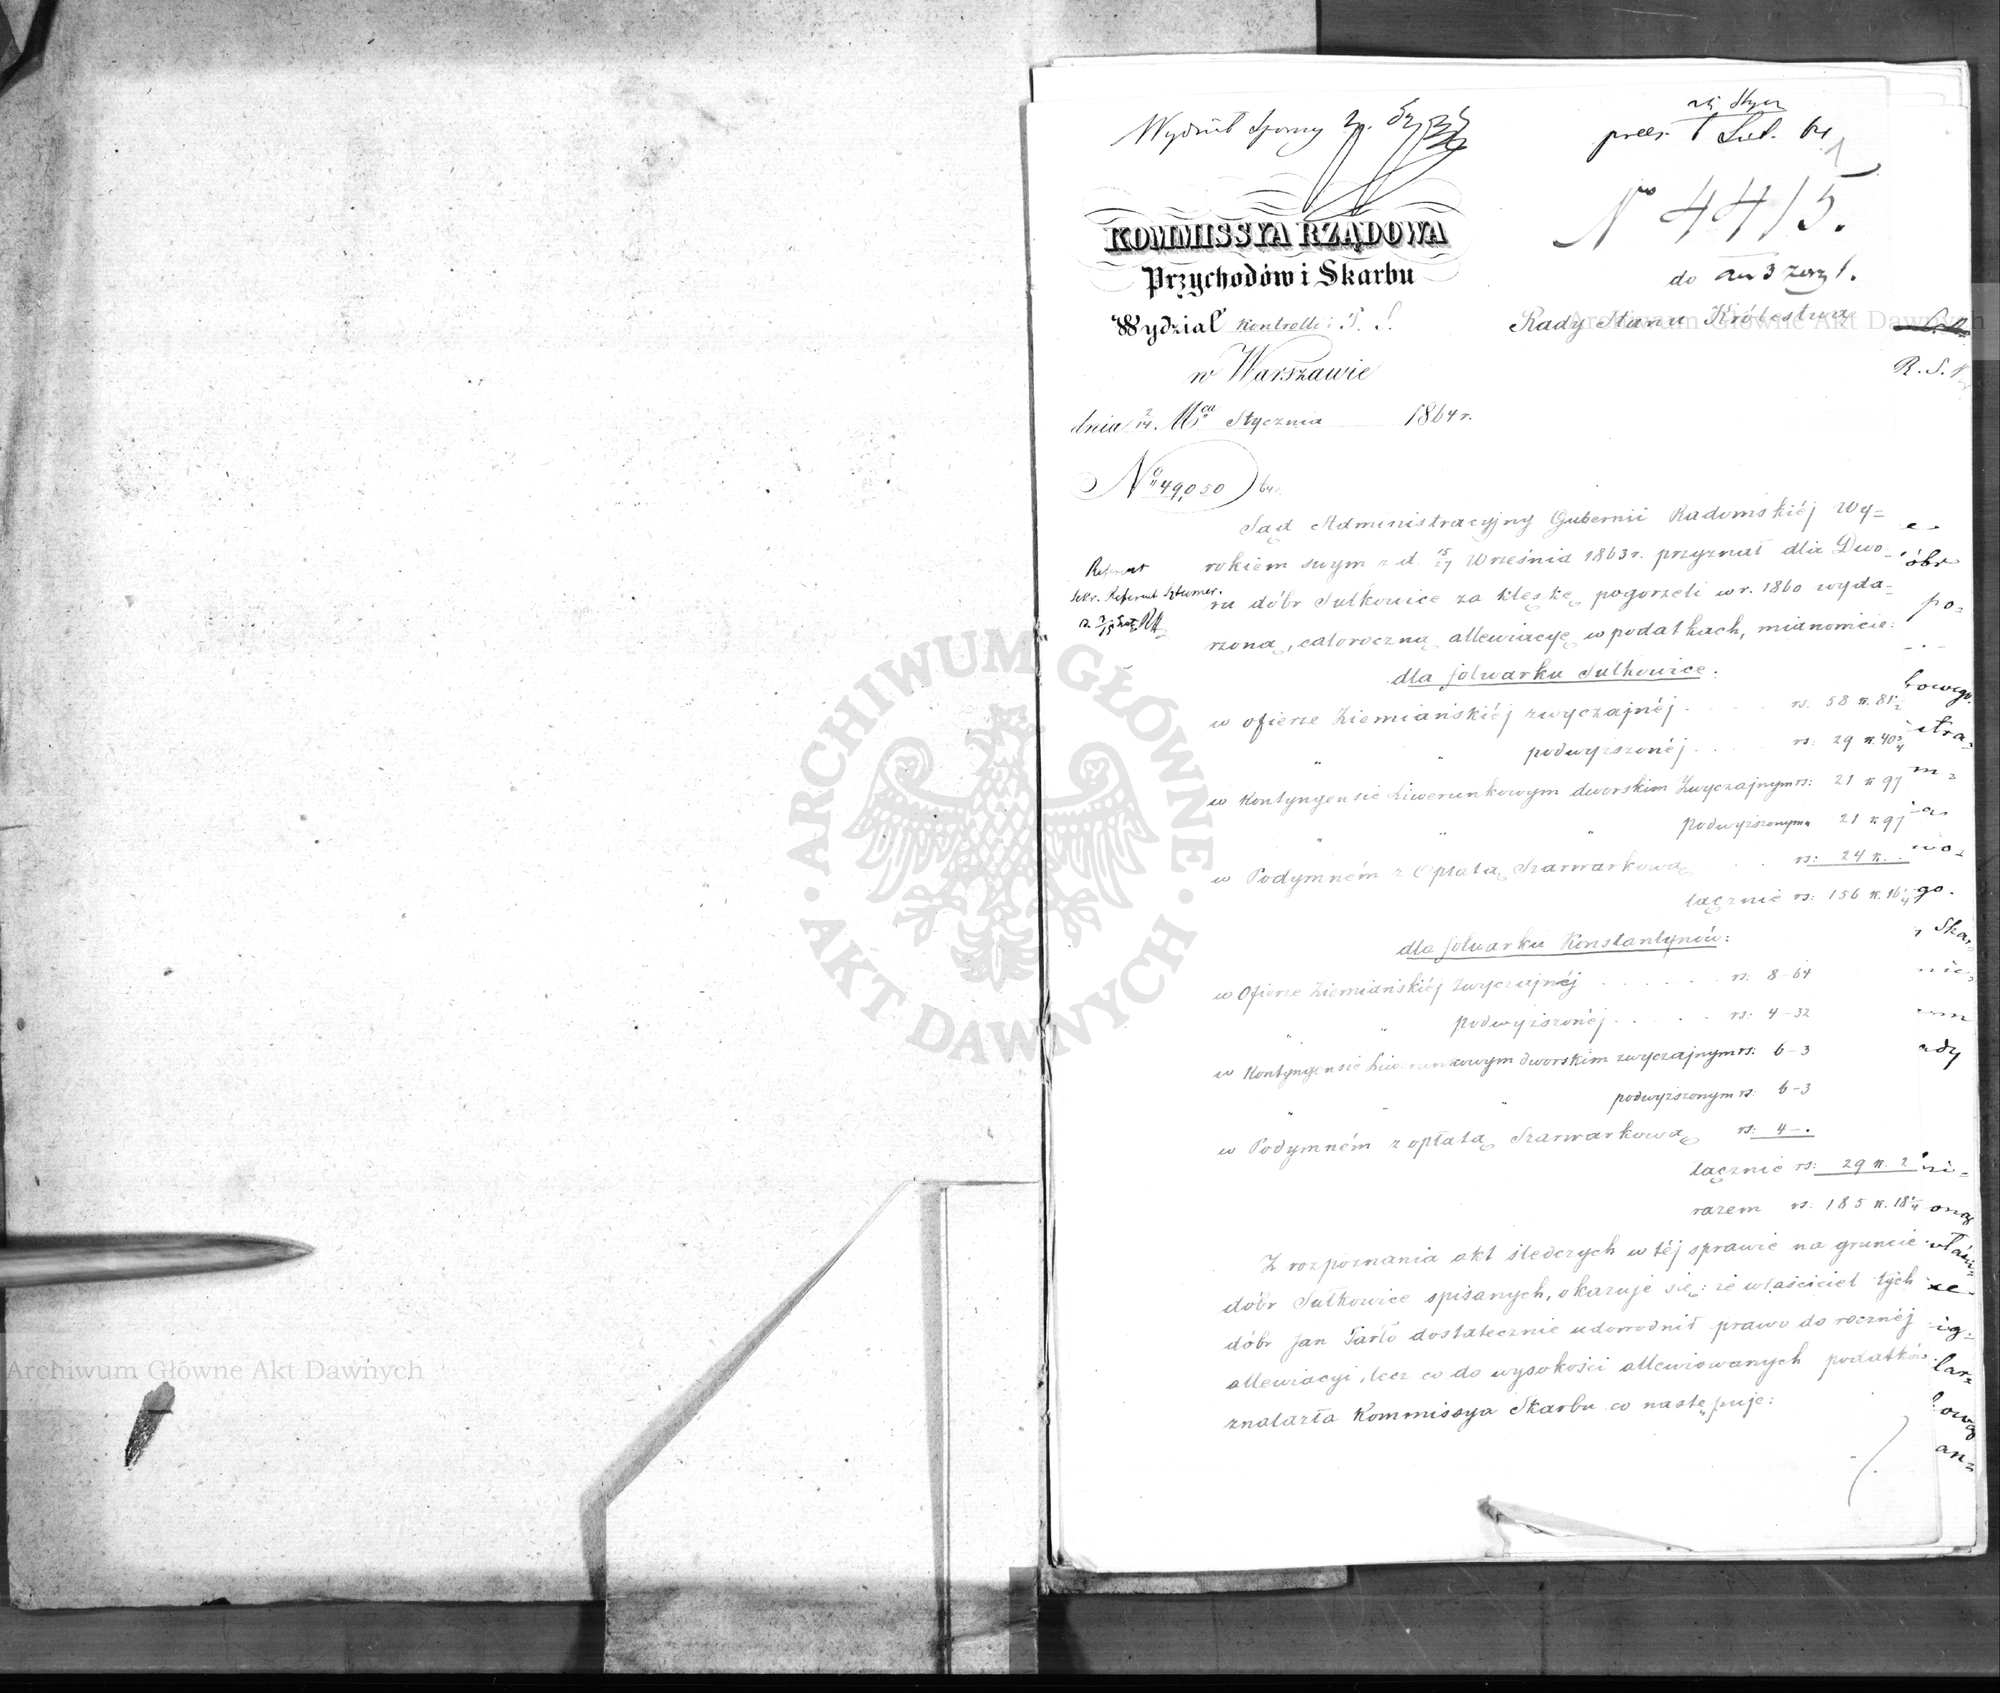 Wydział Sporny
1 Lut. 64
1
KOMMISSYA RZĄDOWA
Przychodów i Skarbu
Wydział Kontrolli i P. S.
w Warszawie
dnia 2/14 Mca Stycznia 1864 r.
No 49,050 64
No 4415.
do
Rady Stanu Królestwa
R. S.
Referent
Sekr. Referent
Sąd Administracyjny Gubernii Radomskiéj Wy=
rokiem swym z d. 15/27 Września 1863 r. przyznał dla Dwo=
ru dóbr Sułkowice za klęskę pogorzeli w r. 1860 wyda=
rzoną, całoroczną allewiacyę w podatkach, mianowicie:
dla folwarku Sułkowice.
w ofierze Ziemiańskiéj zwyczajnéj . . . . rs: 58 k. 81 1/2
" " podwyższonéj . . . . rs: 29 k. 40 3/4
w Kontyngensie Liwerunkowym dworskim Zwyczajnym rs: 21 k 97
" " " podwyższonym " 21 k. 97
w Podymném z Opłatą Szarwarkową . . rs: 24 k. .
łącznie rs: 156 k. 16 1/4
dla folwarku Konstantynów:
w Ofierze Ziemiańskiéj Zwyczajnéj . . . . . . rs: 8-64
" " podwyższonéj . . . . . rs: 4-32
w Kontyngensie Liwerunkowym dworskim zwyczajnym rs: 6-3
" " " podwyższonym rs: 6-3
w Podymném z opłatą Szarwarkową rs: 4-.
łącznie rs: 29 k. 2
razem rs. 185 k. 18 1/4
Z rozpoznania akt śledczych w téj sprawie na gruncie
dóbr Sułkowice spisanych, okazuje się: że właściciel tych
dóbr Jan Tarło dostatecznie udowodnił prawo do rocznéj
allewiacyi, lecz co do wysokości allewiowanych podatków
znalazła Kommissya Skarbu co następuje:
óbr
po=
owego
stra=
m=
wo=
go.
Skar=
nie=
ady
oną
lar=
ową
an=
Archiwum Główne Akt Dawnych
Archiwum Główne Akt Dawnych
ARCHIWUM GŁÓWNE · AKT DAWNYCH ·